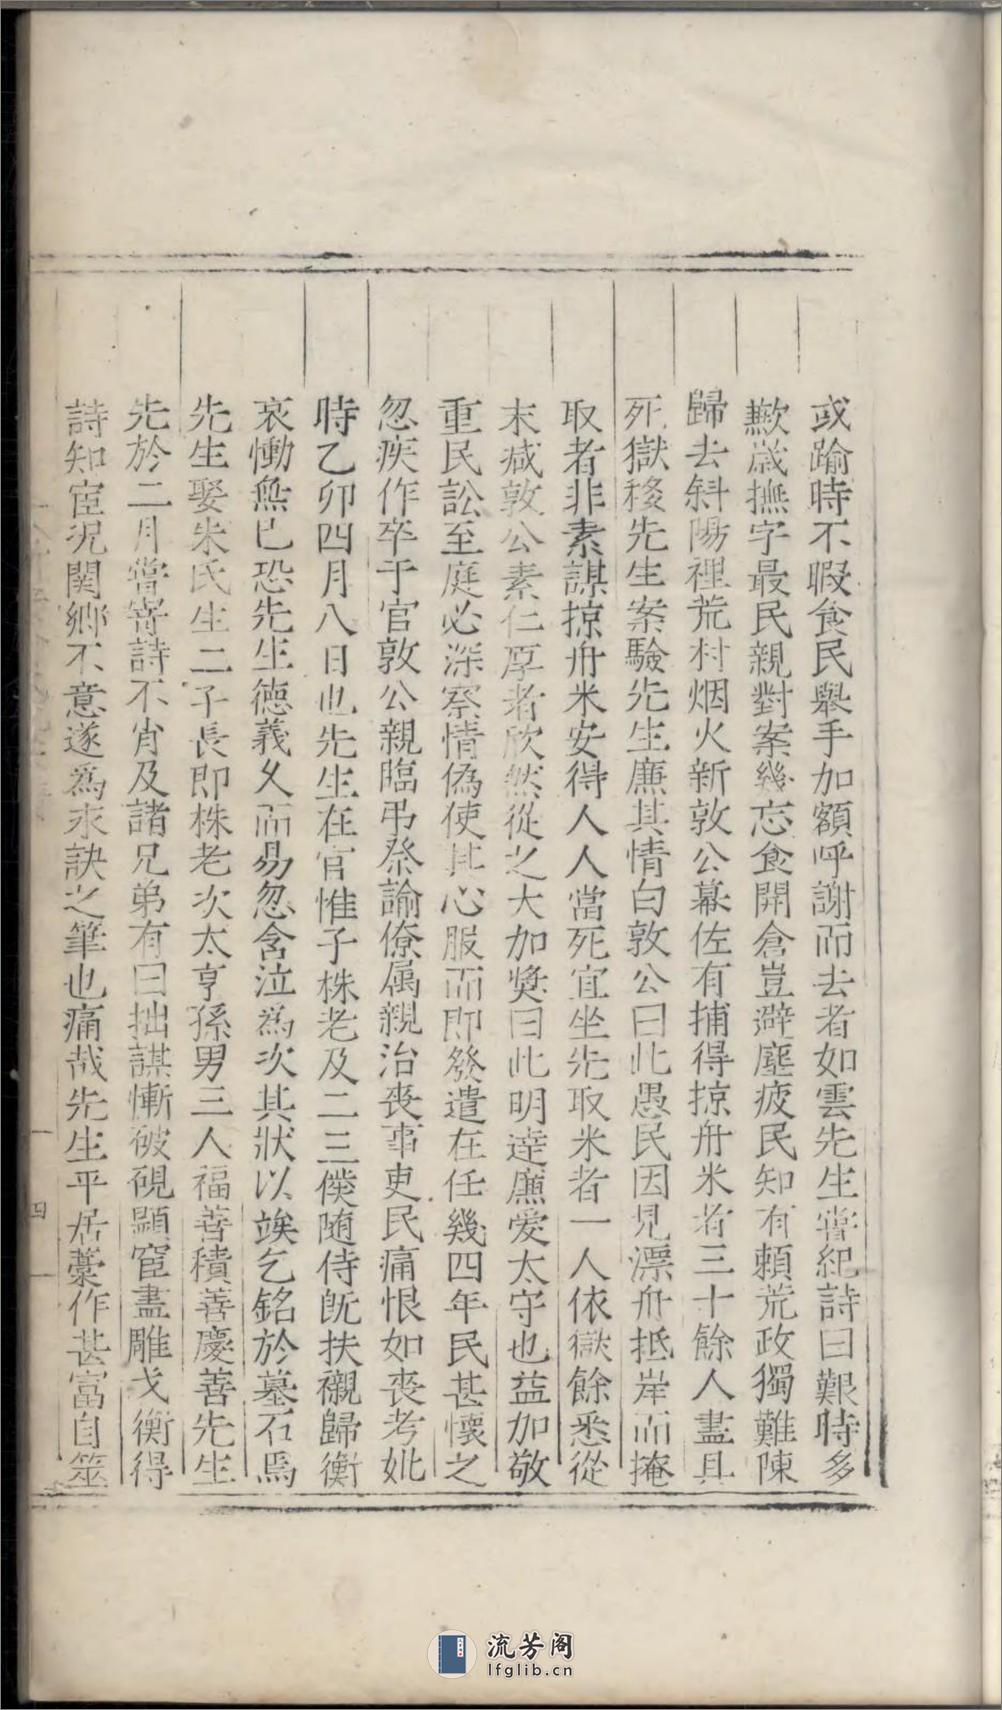 或踰時不暇食民舉手加額呼謝而去者如雲先生嘗紀詩曰艱時多
歉歲撫字最民親對案幾忘食開倉豈避塵疲民知有賴荒政獨難陳
歸去斜陽裡荒村烟火新敦公幕佐有捕得掠舟米者三十餘人晝具
死獄移先生案驗先生廉其情白敦公曰此愚民因見漂舟抵岸而掩
取者非素謀掠舟米安得人人當死宜坐先取米者一人依獄餘悉從
末減敦公素仁厚者欣然從之大加奬曰此明逹廉愛太守也益加敬
重民訟至庭必深察情偽使其心服而即發遣在任幾四年民甚懷之
忽疾作卒于官敦公親臨弔祭諭僚属親治丧事吏民痛恨如丧考妣
時乙卯四月八日也先生在官惟子株老及二三僕随侍旣扶櫬歸衡
哀慟無已恐先生德義乆而易忽含泣為次其狀以竢乞銘於墓石焉
先生娶朱氏生二子長即株老次太亨孫男三人福善積善慶善先生
先於二月嘗寄詩不肖及諸兄弟有曰拙謀慚破硯顯宦盡雕戈衡得
詩知宦况関鄉不意遂為永訣之筆也痛哉先生平居藁作甚富自筮
四
流芳阁
lfglib.cn